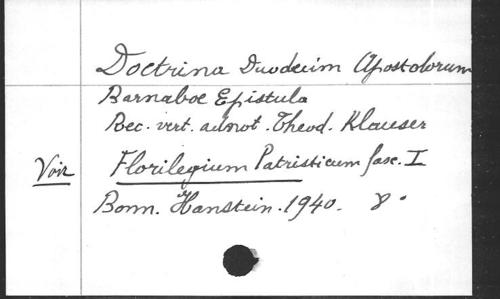 Doctrina Duodecim Apostolorum
Barnabae Epistula
Rec. vert. adnot. Theod. Klauser
Voir Florilegium Patristicum fasc. I
Bonn. Hanstein. 1940. 8°